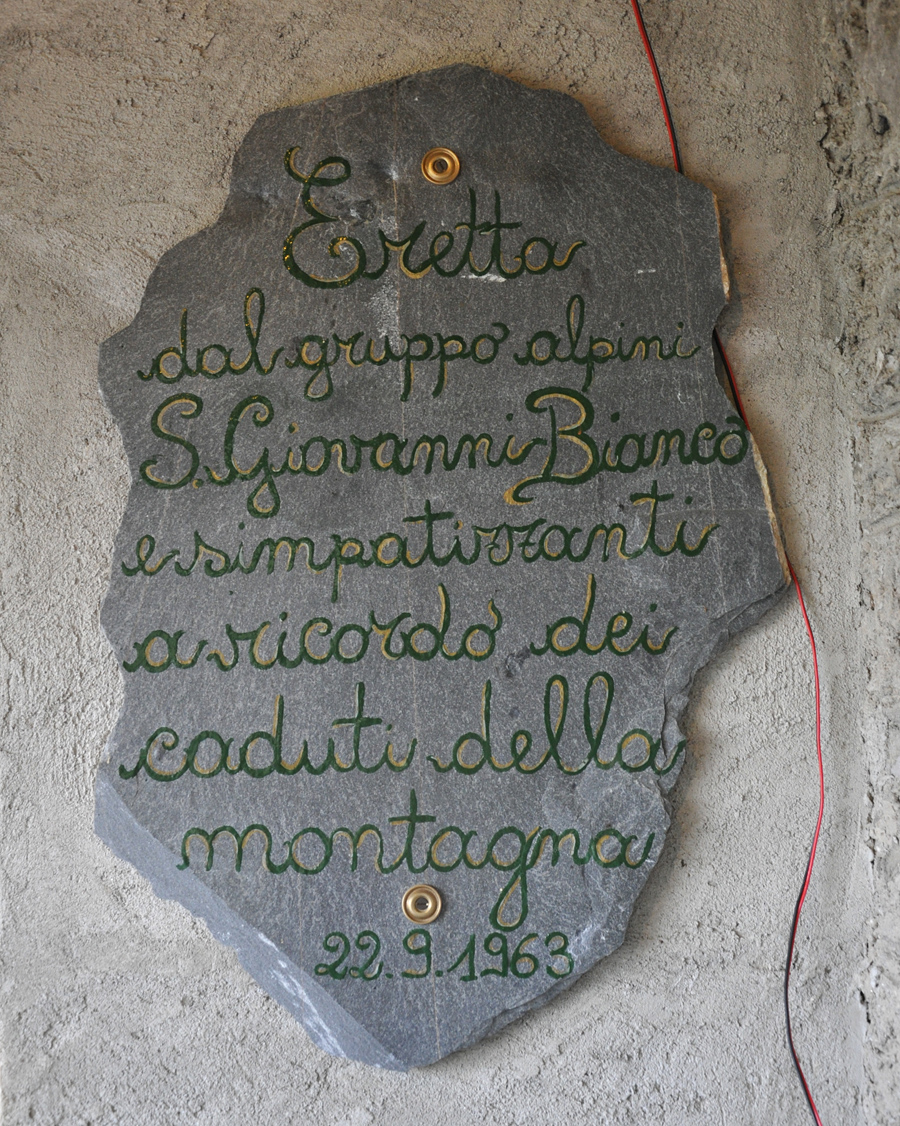 Eretta
dal gruppo alpini
S. Giovanni Bianco
e simpatizzanti
a ricordo dei
caduti della
montagna
22.9.1963